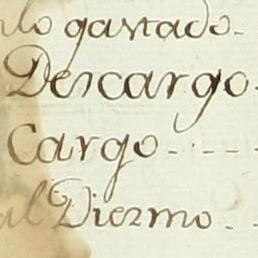 lo gastado.
Descargo.
Cargo - - - -
al Diezmo - -